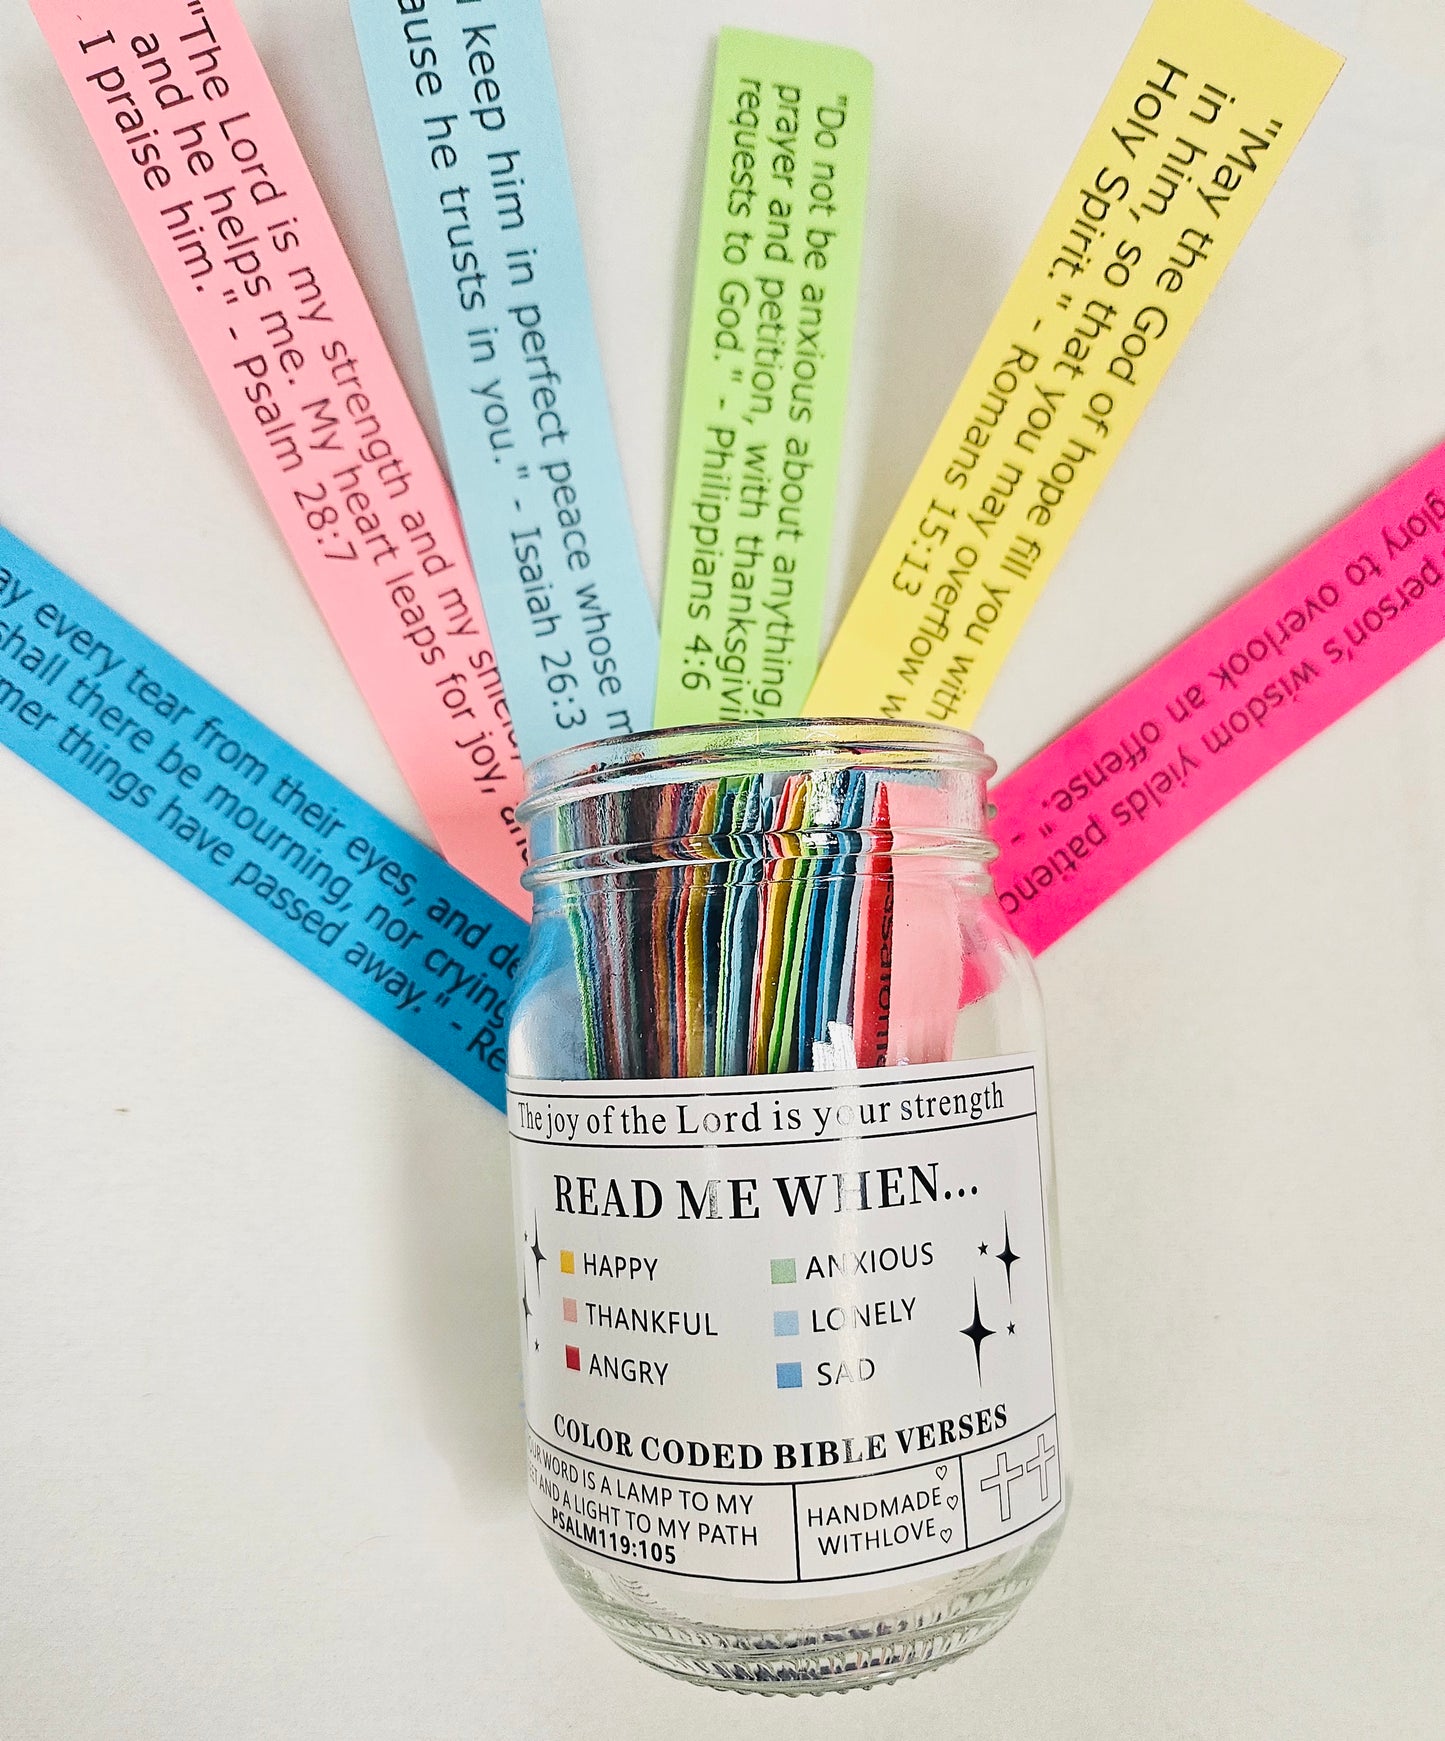 "The Lord is my strength and my
and he helps me. My heart leaps for joy,
I praise him. " - Psalm 28:7
keep him in perfect peace whose
he trusts in you. " - Isaiah 26:3
"Do not be anxious about anything,
prayer and petition, with
requests to God. " - Philippians 4:6
"May the God of hope fill you with
in him, so that you may overflow
Holy Spirit. " - Romans 15:13
person's wisdom yields
glory to overlook an offense. " -
every tear from their eyes, and
shall there be mourning, nor crying
things have passed away. " -
The joy of the Lord is your strength
READ ME WHEN...
HAPPY
THANKFUL
ANGRY
ANXIOUS
LONELY
SAD
COLOR CODED BIBLE VERSES
WORD IS A LAMP TO MY
AND A LIGHT TO MY PATH
PSALM119:105
HANDMADE
WITHLOVE